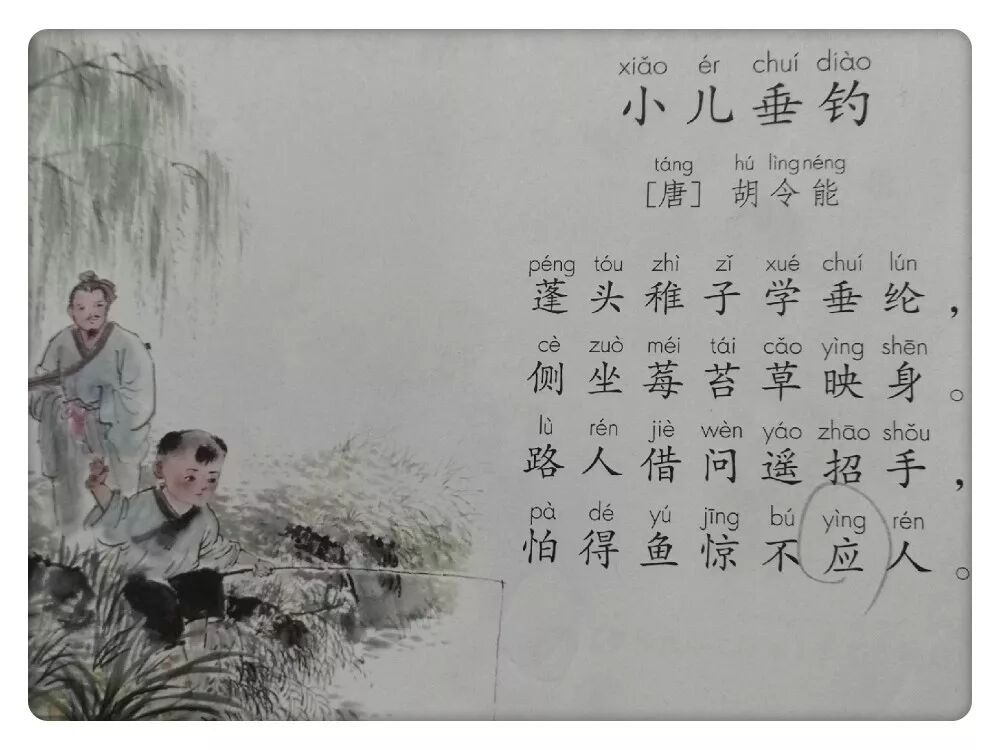 xiǎo ér chuí diào
小儿垂钓
táng hú lìng néng
[唐] 胡令能
péng tóu zhì zǐ xué chuí lún
蓬头稚子学垂纶，
cè zuò méi tái cǎo yìng shēn
侧坐莓苔草映身。
lù rén jiè wèn yáo zhāo shǒu
路人借问遥招手，
pà dé yú jīng bú yìng rén
怕得鱼惊不应人。